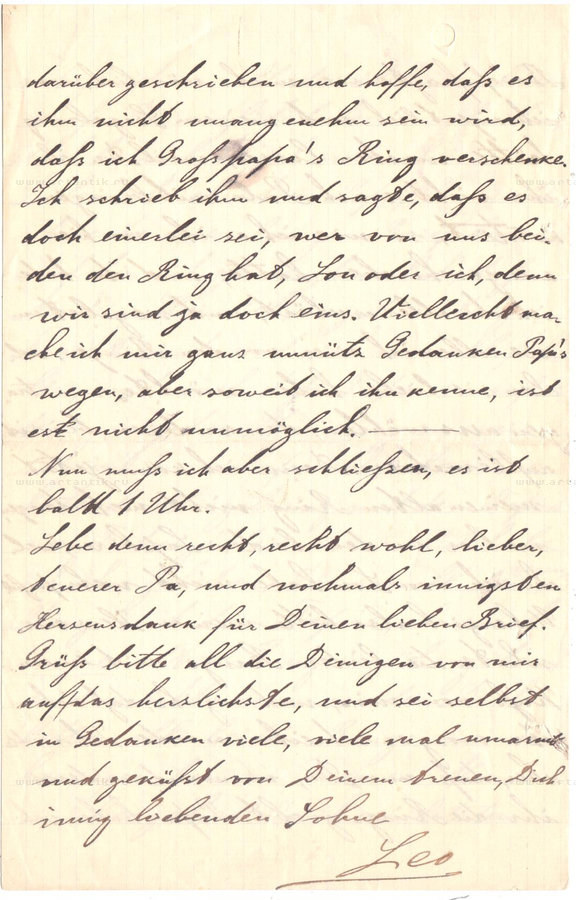 darüber geschrieben und hoffe, daß es
ihm nicht unangenehm sein wird,
daß ich Großpapa's Ring verschenke.
Ich schrieb ihm und sagte, daß es
doch einerlei sei, wer von uns bei-
den den Ring hat, Lou oder ich, denn
wir sind ja doch eins. Vielleicht ma-
che ich mir ganz unnütz Gedanken Papa's
wegen, aber soweit ich ihn kenne, ist
es nicht unmöglich. —
Nun muß ich aber schließen, es ist
bald 1 Uhr.
Lebe denn recht, recht wohl, lieber,
teuerer Pa, und nochmals innigsten
Herzensdank für Deinen lieben Brief.
Grüß bitte all die Deinigen von mir
auf das herzlichste, und sei selbst
in Gedanken viele, viele mal umarmt
und geküßt von Deinem treuen, Dich
innig liebenden Sohne
Leo